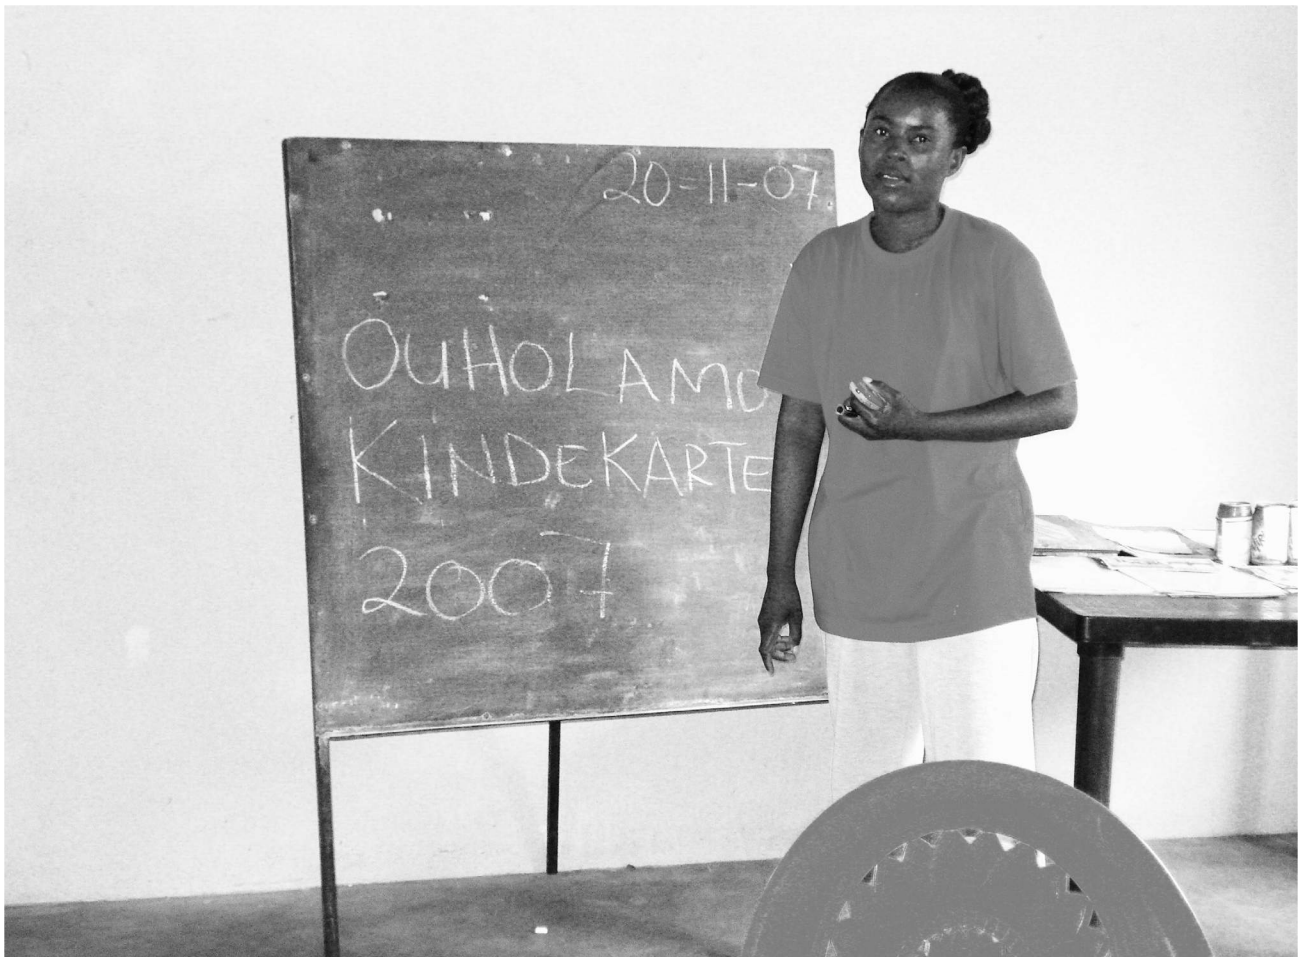 20-11-07
OUHOLAMO
KINDEKARTE
2007